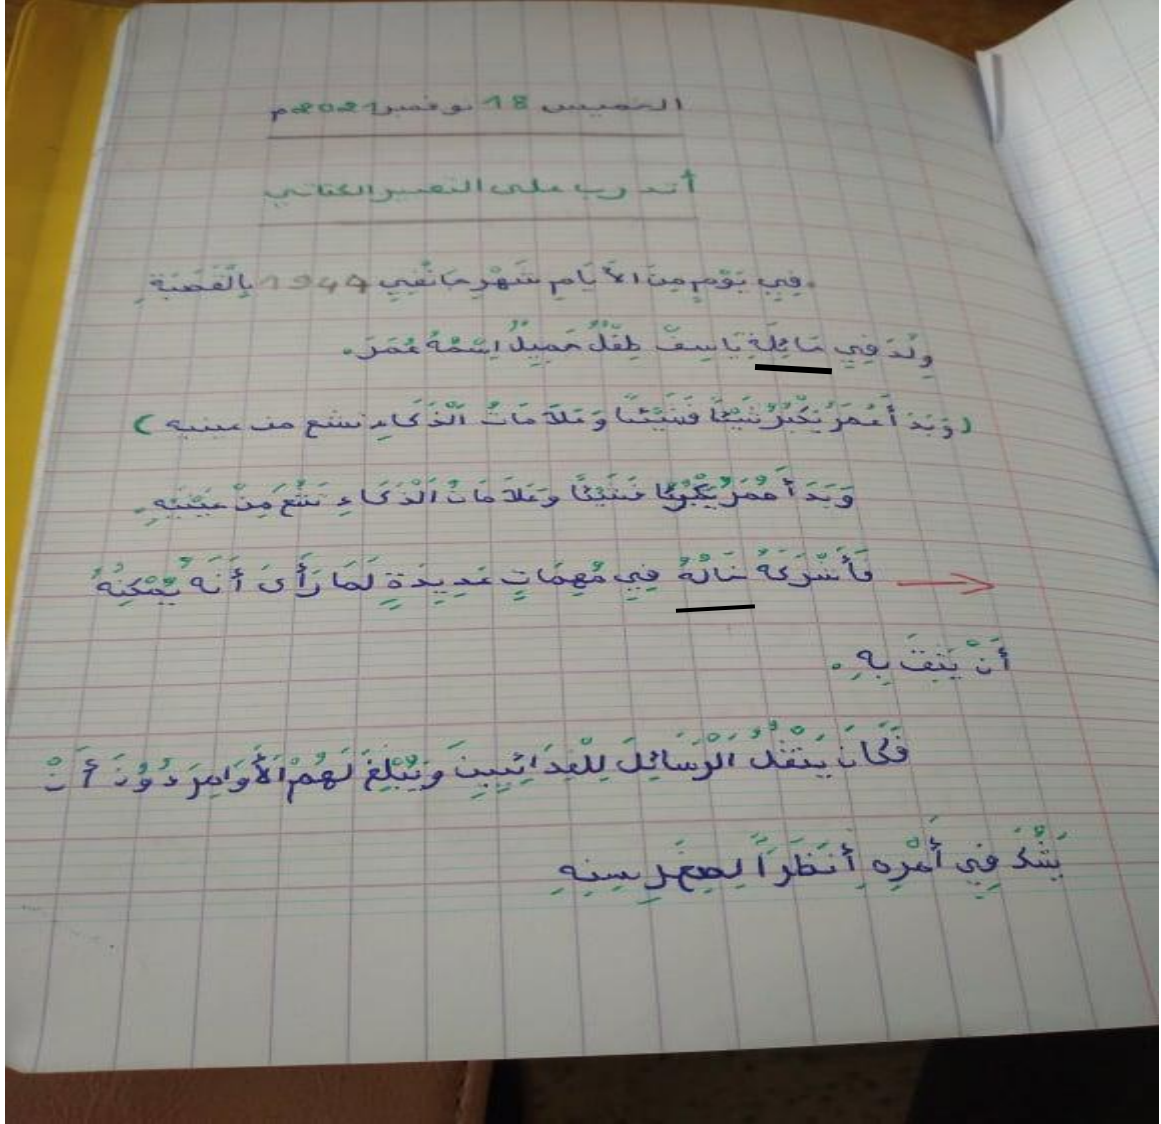 الخميس 18 نوفمبر 2021م
أتدرب على التعبير الكتابي
فِي يَوْمٍ مِنَ الأَيَامِ شَهْرِ جَانْفِي 1944 بِالْقَصَبَةِ
وِلُدَ فِي عَائِلَةِ يَاسِفْ طِفْلٌ جَمِيلٌ اِسْمُهُ عُمَرَ.
(وَبَدَ أَعُمَرُ يَكْبُرُ شَيْئًا فَشَيْئًا وَعَلاَمَاتُ الْذَكَاءِ تشع من عينيه)
وَبَدَ أَعُمَرُ يَكْبُرُ فَشَيْئًا وَعَلاَمَاتُ الْذَكَاءِ تَشُعَ مِنْ عَيْنَيْهِ.
فَأَشْرَكَهُ خَالُهُ فِي مُهِمَاتٍ عَدِيدَةٍ لَمَا رَأَى أَنَهُ يُمْكِنُهُ
أَنْ يَثِقَ بِهِ.
فَكَانَ يَنْقُلُ الْرَسَائِلَ لِلْفِدَائِيِينَ وَيُبْلِغَ لَهُمْ الْأَوَامِرَ دُوْنَ أَنْ
يُشْكَ فِي أَمْرِهِ أَنَظَرًا لِصِغَرِ سِنِهِ